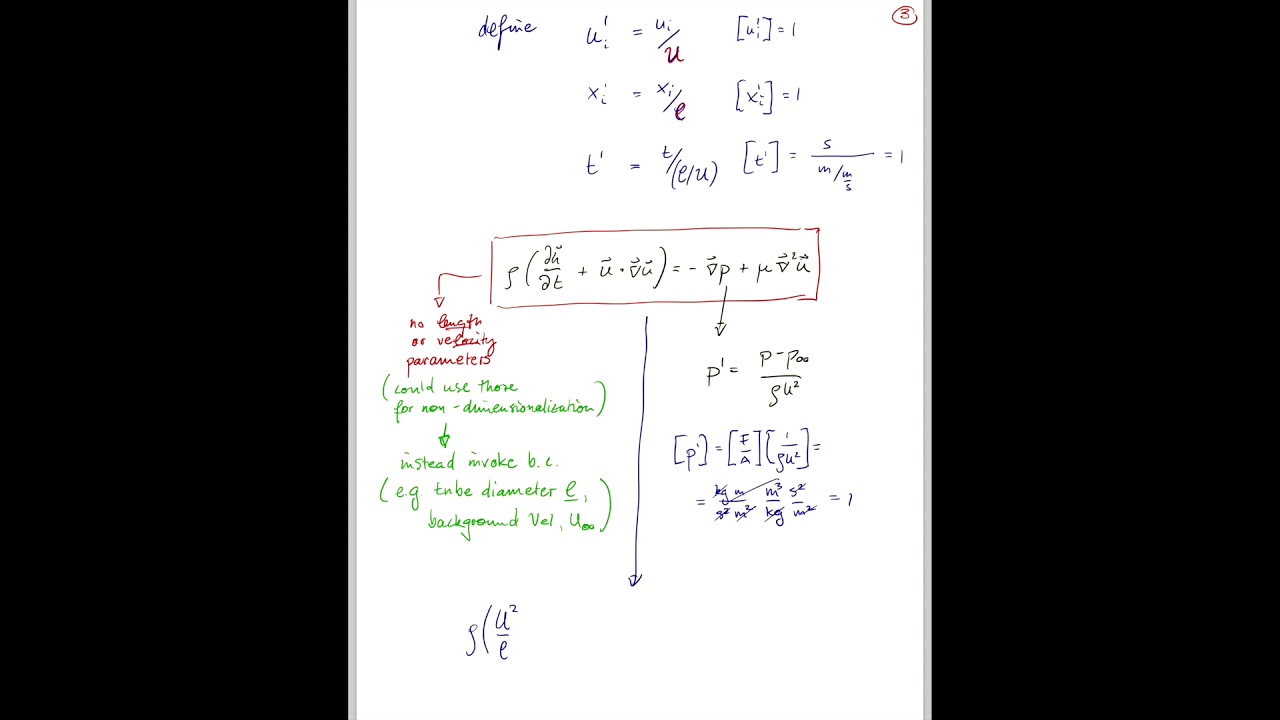 ③
define u_i' = u_i/U [u_i'] = 1
x_i' = x_i/ℓ [x_i'] = 1
t' = t/(ℓ/U) [t'] = s / (m/(m/s)) = 1
ρ(∂u⃗/∂t + u⃗ · ∇⃗u⃗) = - ∇⃗p + μ∇⃗²u⃗
no length
or velocity
parameters
(could use those
for non-dimensionalization)
instead invoke b.c.
(e.g tube diameter ℓ,
background vel, U∞)
p' = (p - p∞)/(ρU²)
[p'] = [F/A][1/(ρU²)] =
= (kg m)/(s² m²) m³/kg s²/m² = 1
ρ(U²/ℓ